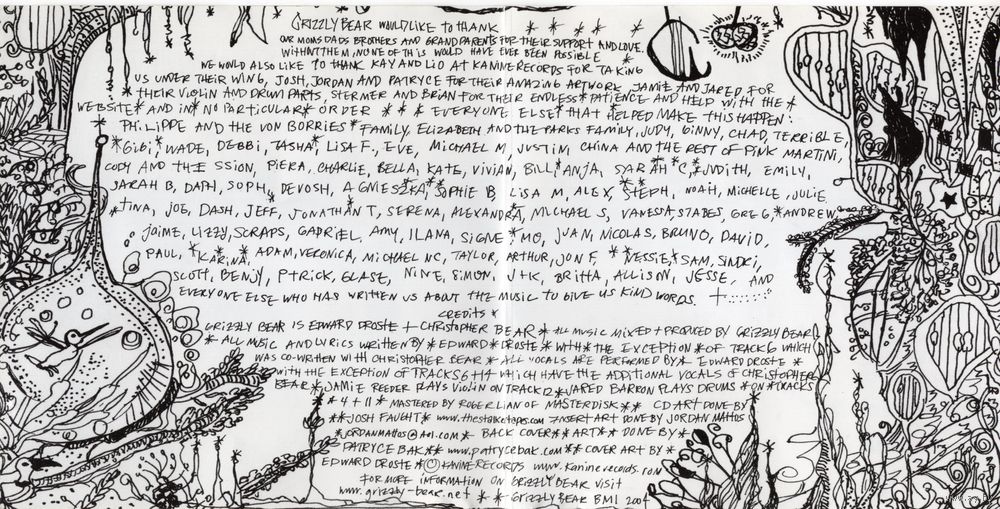 GRIZZLY BEAR WOULD LIKE TO THANK
OUR MOMS DADS BROTHERS AND GRANDPARENTS FOR THEIR SUPPORT AND LOVE.
WITHOUT THEM, NONE OF THIS WOULD HAVE EVER BEEN POSSIBLE
WE WOULD ALSO LIKE TO THANK KAY AND LIO AT KANINE RECORDS FOR TAKING
US UNDER THEIR WING, JOSH, JORDAN AND PATRYCE FOR THEIR AMAZING ARTWORK JAMIE AND JARED FOR
* THEIR VIOLIN AND DRUM PARTS STERMER AND BRIAN FOR THEIR ENDLESS * PATIENCE AND HELP WITH THE *
WEBSITE * AND IN * NO PARTICULAR * ORDER * * * EVERYONE ELSE * THAT HELPED MAKE THIS HAPPEN:
* PHILIPPE AND THE VON BORRIES * FAMILY, ELIZABETH AND THE PARKS FAMILY, JUDY, GINNY, CHAD, TERRIBLE,
* GIBI * WADE, DEBBI, TASHA * LISA F., EVE, MICHAEL M, JUSTIM, CHINA AND THE REST OF PINK MARTINI,
CODY AND THE SSION, PIERA, CHARLIE, BELLA, KATE, VIVIAN, BILL * ANJA, SARAH * C, * JUDITH, EMILY,
SARAH B, DAPH, SOPH, DEVOSH, AGNIESZKA * * SOPHIE B LISA M, ALEX * STEPH, NOAH, MICHELLE, JULIE
* TINA, JOE, DASH, JEFF, JONATHAN T, SERENA, ALEXANDRA, MICHAEL S, VANESSA, STABES, GREG, * ANDREW
JAIME, LIZZY, SCRAPS, GABRIEL, AMY, ILANA, SIGNE * MO, JUAN, NICOLAS, BRUNO, DAVID,
PAUL, * KARINA * ADAM, VERONICA, MICHAEL NC, TAYLOR, ARTHUR, JON F, * NESSIE, * SAM, SINDRI,
SCOTT, BENJY, PTRICK, GLASE, NINE, SIMON, J+K, BRITTA, ALLISON, JESSE, AND
EVERYONE ELSE WHO HAS WRITTEN US ABOUT THE MUSIC TO GIVE US KIND WORDS. +
CREDITS *
GRIZZLY BEAR IS EDWARD DROSTE + CHRISTOPHER BEAR * ALL MUSIC MIXED + PRODUCED BY GRIZZLY BEAR
* ALL MUSIC AND LYRICS WRITTEN BY * EDWARD * DROSTE * WITH * THE EXCEPTION * OF TRACK 6 WHICH
WAS CO-WRITTEN WITH CHRISTOPHER BEAR * ALL VOCALS ARE PERFORMED BY * EDWARD DROSTE *
* WITH THE EXCEPTION OF TRACKS 6 + 14 WHICH HAVE THE ADDITIONAL VOCALS OF CHRISTOPHER
BEAR * JAMIE REEDER PLAYS VIOLIN ON TRACK 12 * JARED BARRON PLAYS DRUMS * ON * TRACKS
* * 4 + 11 * MASTERED BY ROGER LIAN OF MASTERDISK * * CD ART DONE BY
* * JOSH FAUGHT * www.thestalketapes.com INSERT ART DONE BY JORDAN MATTOS
* jordanmattos@aol.com * BACK COVER * * ART * DONE BY *
* PATRYCE BAK * * www.patrycebak.com * * COVER ART BY *
EDWARD DROSTE * © KANINE RECORDS www.kaninerecords.com
FOR MORE INFORMATION ON GRIZZLY BEAR VISIT
www.grizzly-bear.net * * GRIZZLY BEAR BMI 2004